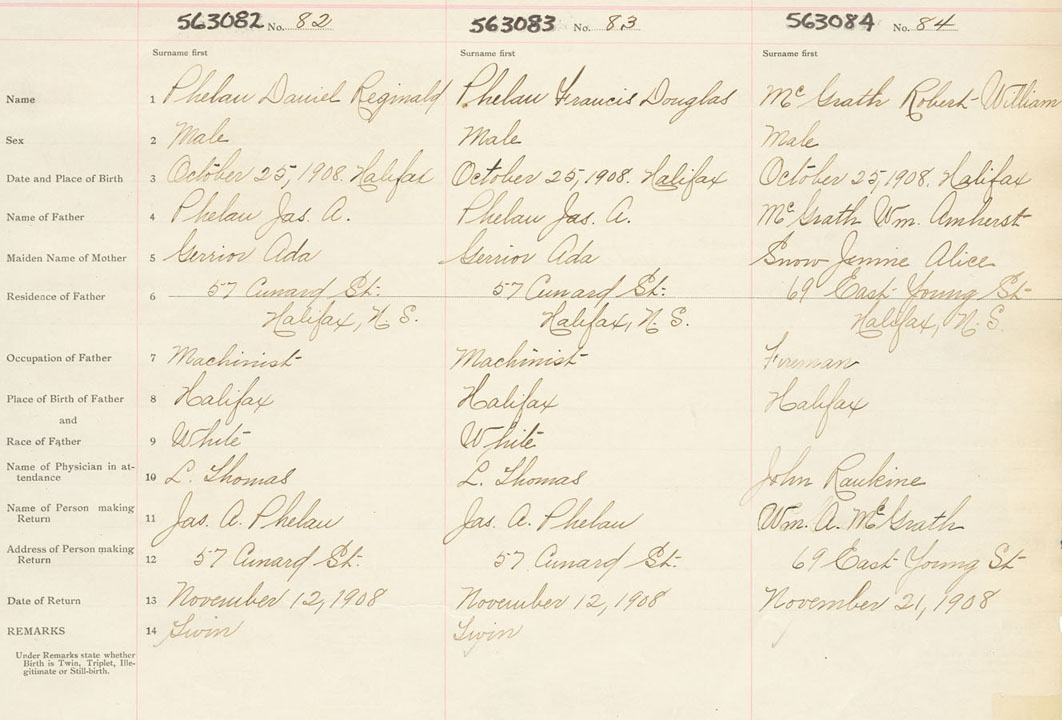 563082 No. 82 563083 No. 83 563084 No. 84
Surname first Surname first Surname first
Name 1 Phelan Daniel Reginald Phelan Francis Douglas McGrath Robert William
Sex 2 Male Male Male
Date and Place of Birth 3 October 25, 1908. Halifax October 25, 1908. Halifax October 25, 1908. Halifax
Name of Father 4 Phelan Jas. A. Phelan Jas. A. McGrath Wm. Amherst
Maiden Name of Mother 5 Gerrior Ada Gerrior Ada Snow Jennie Alice
Residence of Father 6 57 Cunard St. 57 Cunard St. 69 East Young St
Halifax, N.S. Halifax, N.S. Halifax, N.S.
Occupation of Father 7 Machinist Machinist Fireman
Place of Birth of Father 8 Halifax Halifax Halifax
and
Race of Father 9 White White
Name of Physician in at-
tendance 10 L. Thomas L. Thomas John Rankine
Name of Person making
Return 11 Jas. A. Phelan Jas. A. Phelan Wm. A. McGrath
Address of Person making
Return 12 57 Cunard St. 57 Cunard St. 69 East Young St
Date of Return 13 November 12, 1908 November 12, 1908 November 21, 1908
REMARKS 14 Twin Twin
Under Remarks state whether
Birth is Twin, Triplet, Ille-
gitimate or Still-birth.